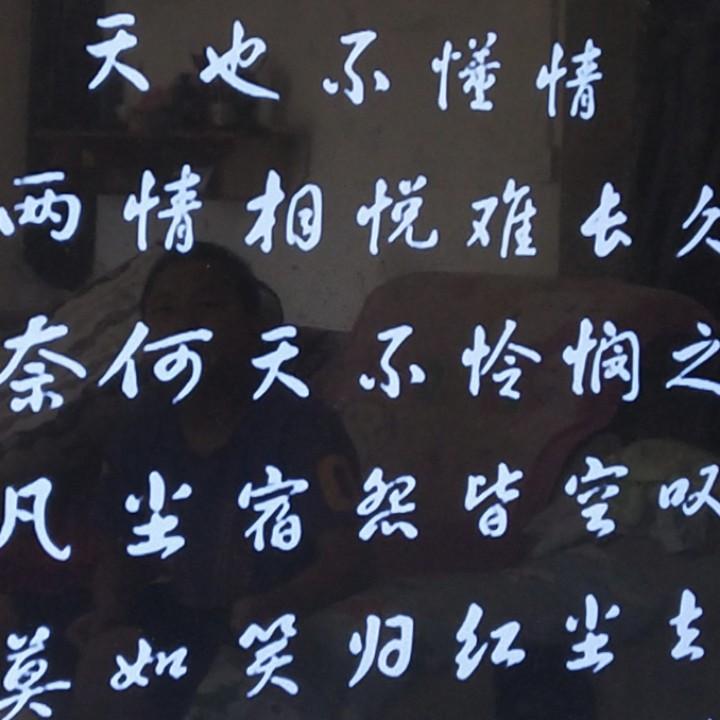 天也不懂情
两情相悦难长久
奈何天不怜悯之
凡尘宿怨皆空叹
莫如笑归红尘去